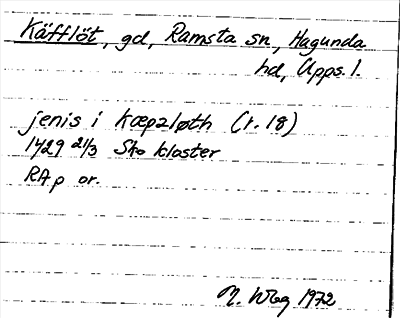 Käfflöt, gd, Ramsta sn, Hagunda
hd, Upps. l.
jenis i kæpzløth (r. 18)
1429 21/3 Sko kloster
RAp or.
M. Wbg 1972